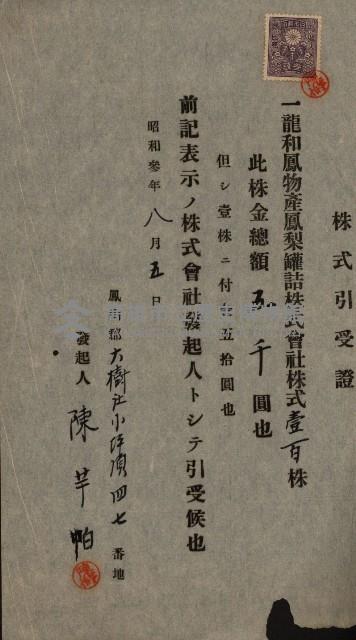 株式引受證
一龍和鳳物產鳳梨罐詰株式會社株式壹百株
此株金總額五千圓也
但シ壹株ニ付五拾圓也
前記表示ノ株式會社發起人トシテ引受候也
昭和參年八月五日
鳳郡大樹庄小坪頂四七番地
發起人 陳芋帕